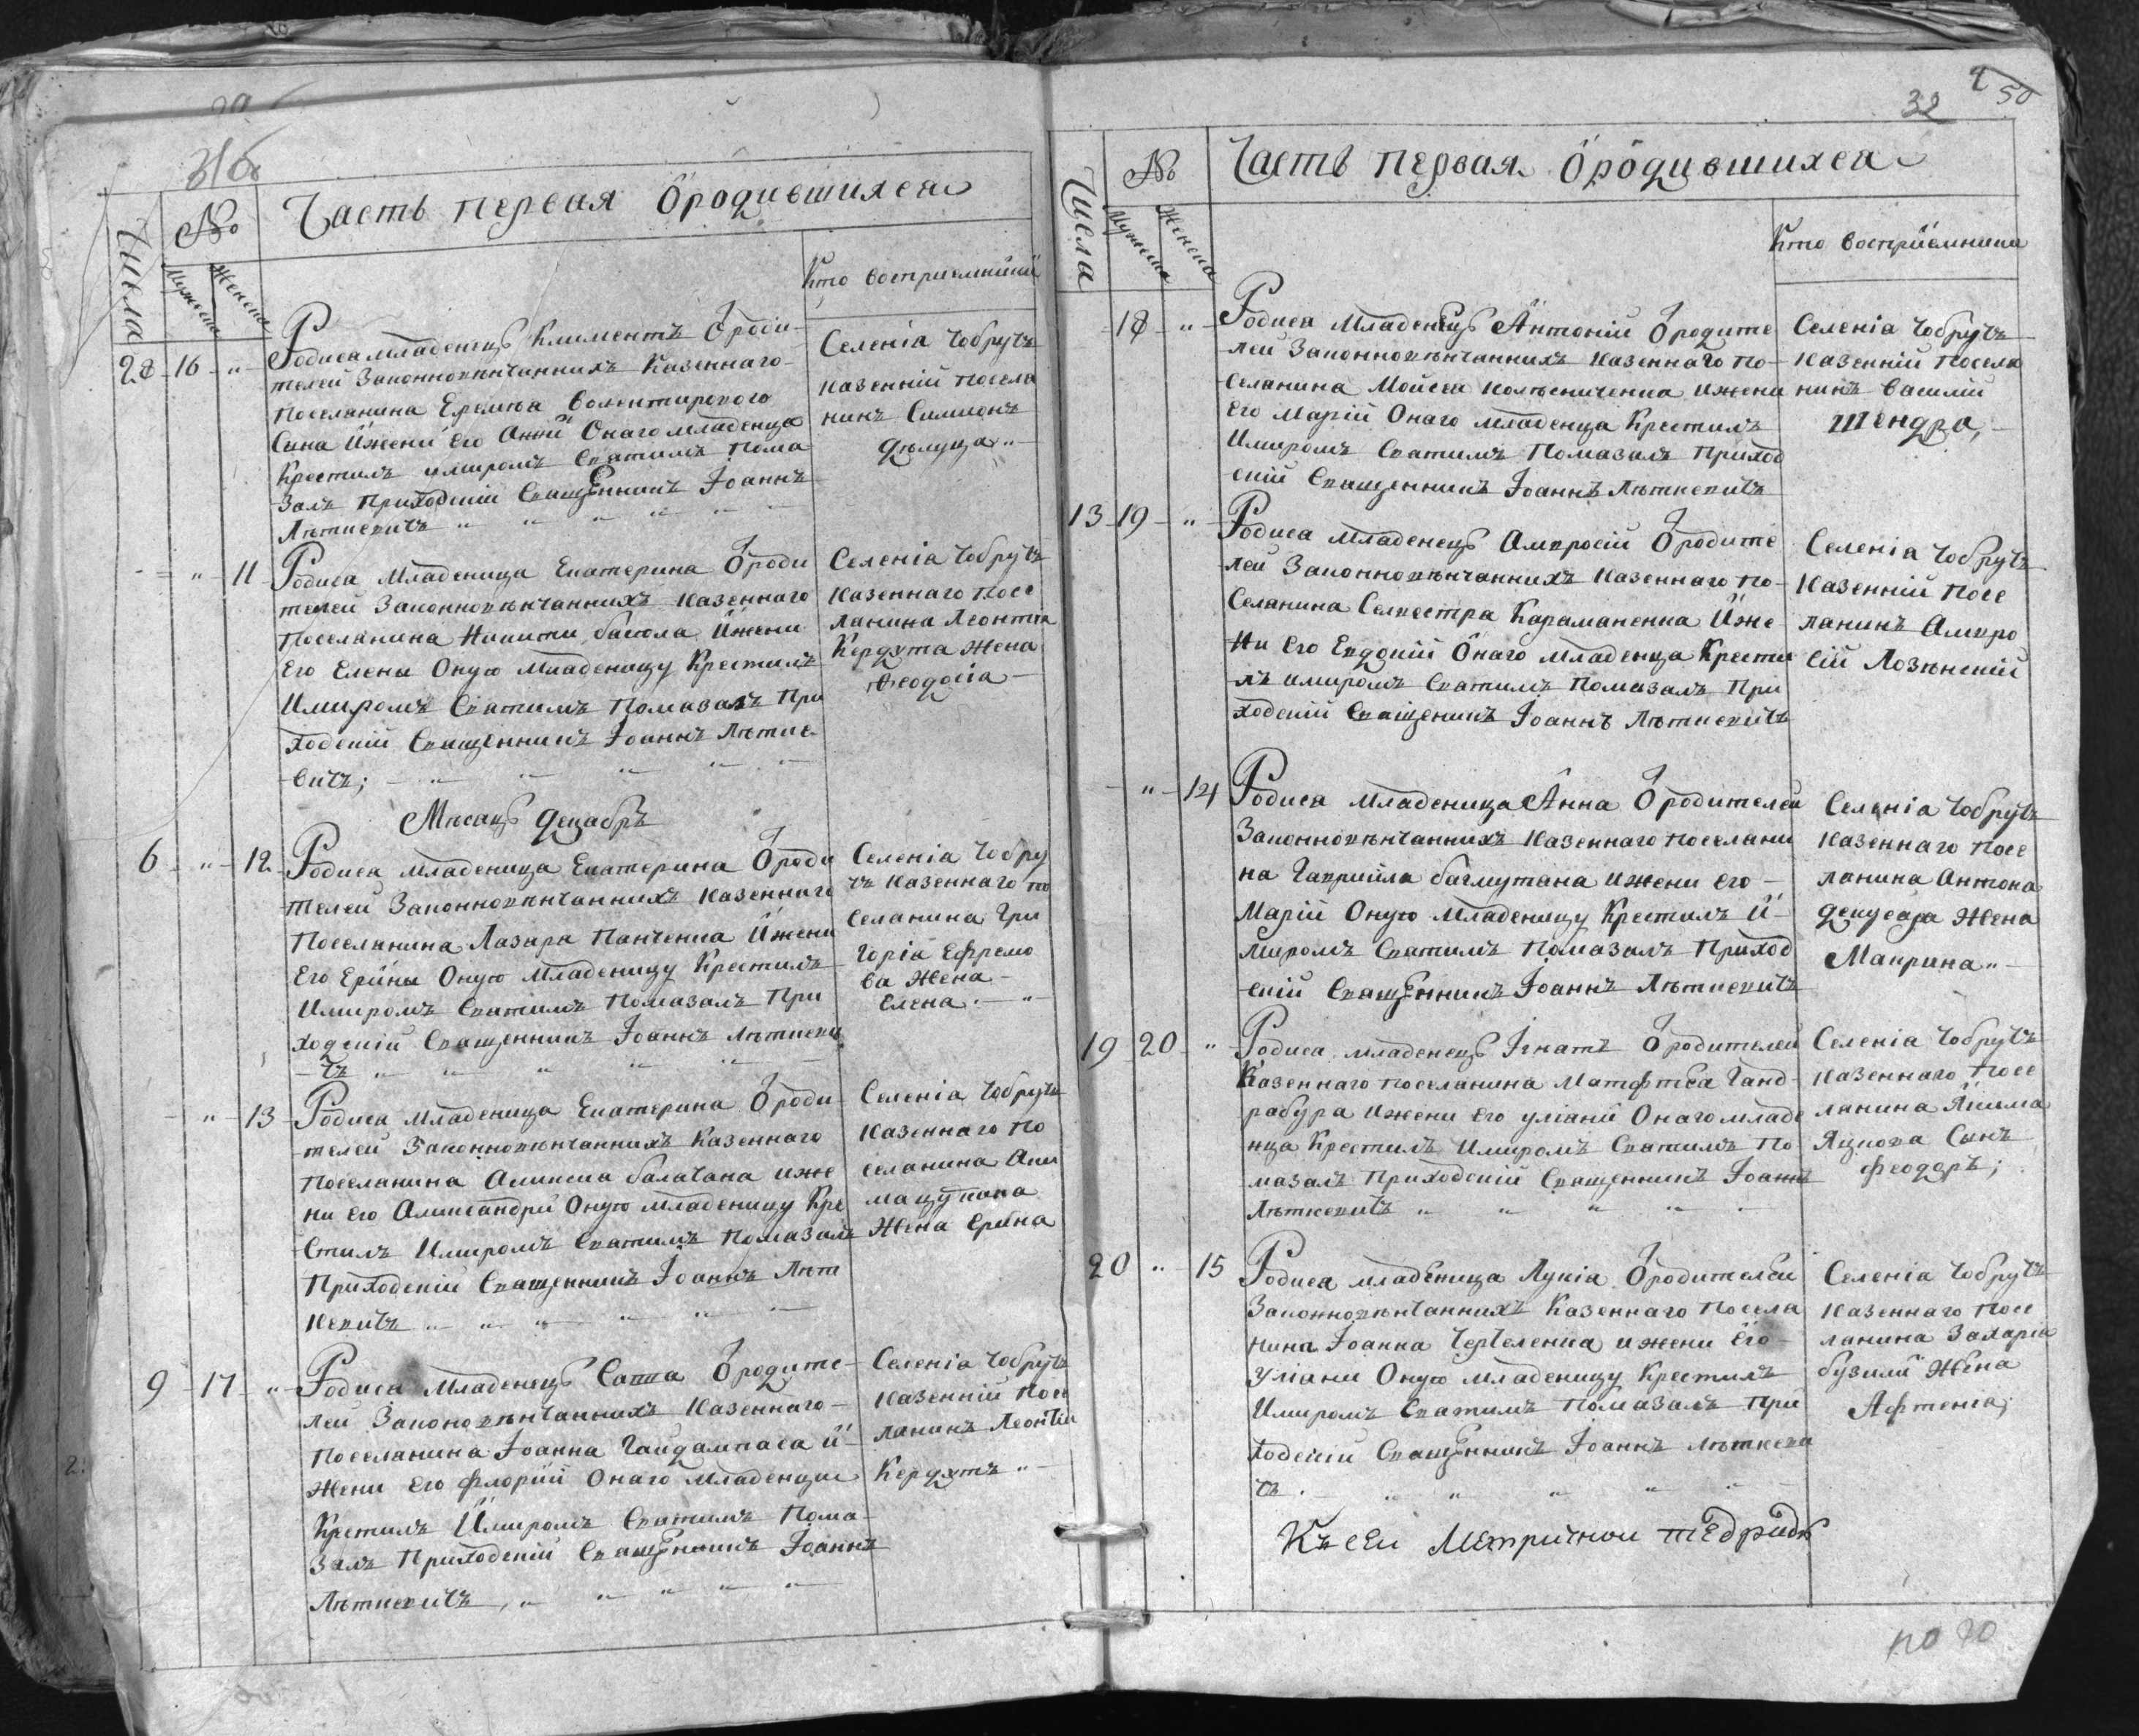 31б
Числа
№
Мужеска
Женска
Часть первая О родившихся
Кто восприемники
28 16 "
Родися младенецъ Климентъ О роди-
телей Законновѣнчанныхъ Казеннаго
поселянина Еремѣа
Сына и жени его Анни Онаго младенца
Крестилъ имиромъ Святимъ пома
залъ Приходскій Священникъ Іоаннъ
Лѣткевичъ
Селенія Чобручъ
казенній посела
нинъ Симионъ
" 11
Родися Младеница Екатерина О роди
телей Законновѣнчанныхъ казеннаго
поселянина Никити Ижени
Его Елены Оную Младеницу Крестилъ
Имиромъ Святимъ Помазалъ При
ходскій Священникъ Іоаннъ Лѣтке-
вичъ;
Селенія Чобручъ
казеннаго посе
ланина Леонтія
Кердута жена
Ѳеодосіа
Мѣсацъ Декабръ
6 " 12
Родися младеница Екатерина О роди
телей Законновѣнчанныхъ казеннаго
Поселянина Лазаря Панченка Ижени
Его Ерины Оную Младеницу Крестилъ
Имиромъ Святимъ Помазалъ При
ходскій Священникъ Іоаннъ Лѣткеви
чъ
Селенія Чобру
чъ казеннаго по
селанина Гри
горіа Ефремо
ва жена
Елена
" 13
Родися младеница Екатерина О роди
телей Законновѣнчанныхъ Казеннаго
поселянина Аликсиа балачана иже
ни его Аликсандри Оную младеницу Кре
стилъ Имиромъ Святимъ Помазалъ
Приходскій Священникъ Іоаннъ Лѣт
кевичъ
Селенія Чобручъ
казеннаго по
селанина
жена Ерина
9 17 "
Родися Младенецъ Савва О родите-
лей Законовѣнчанныхъ казеннаго
поселянина Іоанна Гайдампаса и
жени его Флорий Онаго младенци
Крстилъ Имиромъ Святимъ Пома-
залъ Приходскій Священникъ Іоаннъ
Лѣткевичъ
Селенія Чобручъ
казенній посе
ланинъ Леонтіи
Кердутъ
32
50
Числа
№
Мужеска
Женска
Часть первая О родившихся
Кто воспріемники
18 "
Родися Младенецъ Антоній О родите
лей Законновѣнчанныхъ казеннаго по-
селанина Мойсея Колѣсниченка ижени
Его Марій Онаго младенца Крестилъ
Имиромъ Святимъ Помазалъ Приход
скій Священникъ Іоаннъ Лѣткевичъ
Селенія Чобручъ
казенній посела
нинъ Василій
Шендря,
13 19 "
Родися младенецъ Амвросій О родите
лей Законновѣнчанныхъ казеннаго по-
селанина Селвестра Караманенка Иже
ни Его Евдокій Онаго младенца Крести
лъ имиромъ Святимъ Помазалъ При
ходскій Свищеникъ Іоаннъ Лѣткевичъ
Селенія Чобручъ
казенній посе
ланинъ Амвро
сій Лозѣнскій
" 14
Родися младеница Анна О родителей
Законновѣнчанныхъ казеннаго поселани
на Гавриила бахмутана ижени его
Марій Оную младеницу Крестилъ и
миромъ Святимъ Помазалъ Приход
скій Священникъ Іоаннъ Лѣткевичъ
Селенія Чобручъ
казеннаго посе
ланина Антона
жена
Маврина
19 20 "
Родися младенецъ Ігнатъ О родителей
Казеннаго поселанина Матфтеа Ганд-
рабура ижени его уліаній Онаго младе
нца Крестилъ Имиромъ Святимъ По
мазалъ Приходскій Священникъ Іоаннъ
Лѣткевичъ
Селенія Чобручъ
казеннаго посе
ланина Якима
Яцкова Сынъ
Феодоръ;
20 " 15
Родися младеница Лукіа О родителей
Законновѣнчанныхъ Казеннаго посела
нина Іоанна Черчеленка ижени его
уліани Оную младеницу Крестилъ
Имиромъ Святимъ Помазалъ При
ходскій Священникъ Іоаннъ Лѣткеви
чъ
Селенія Чобручъ
казеннаго посе
ланина Захаріа
бузили жена
Афтеніа;
Къ сей Метричнои тедридѣ